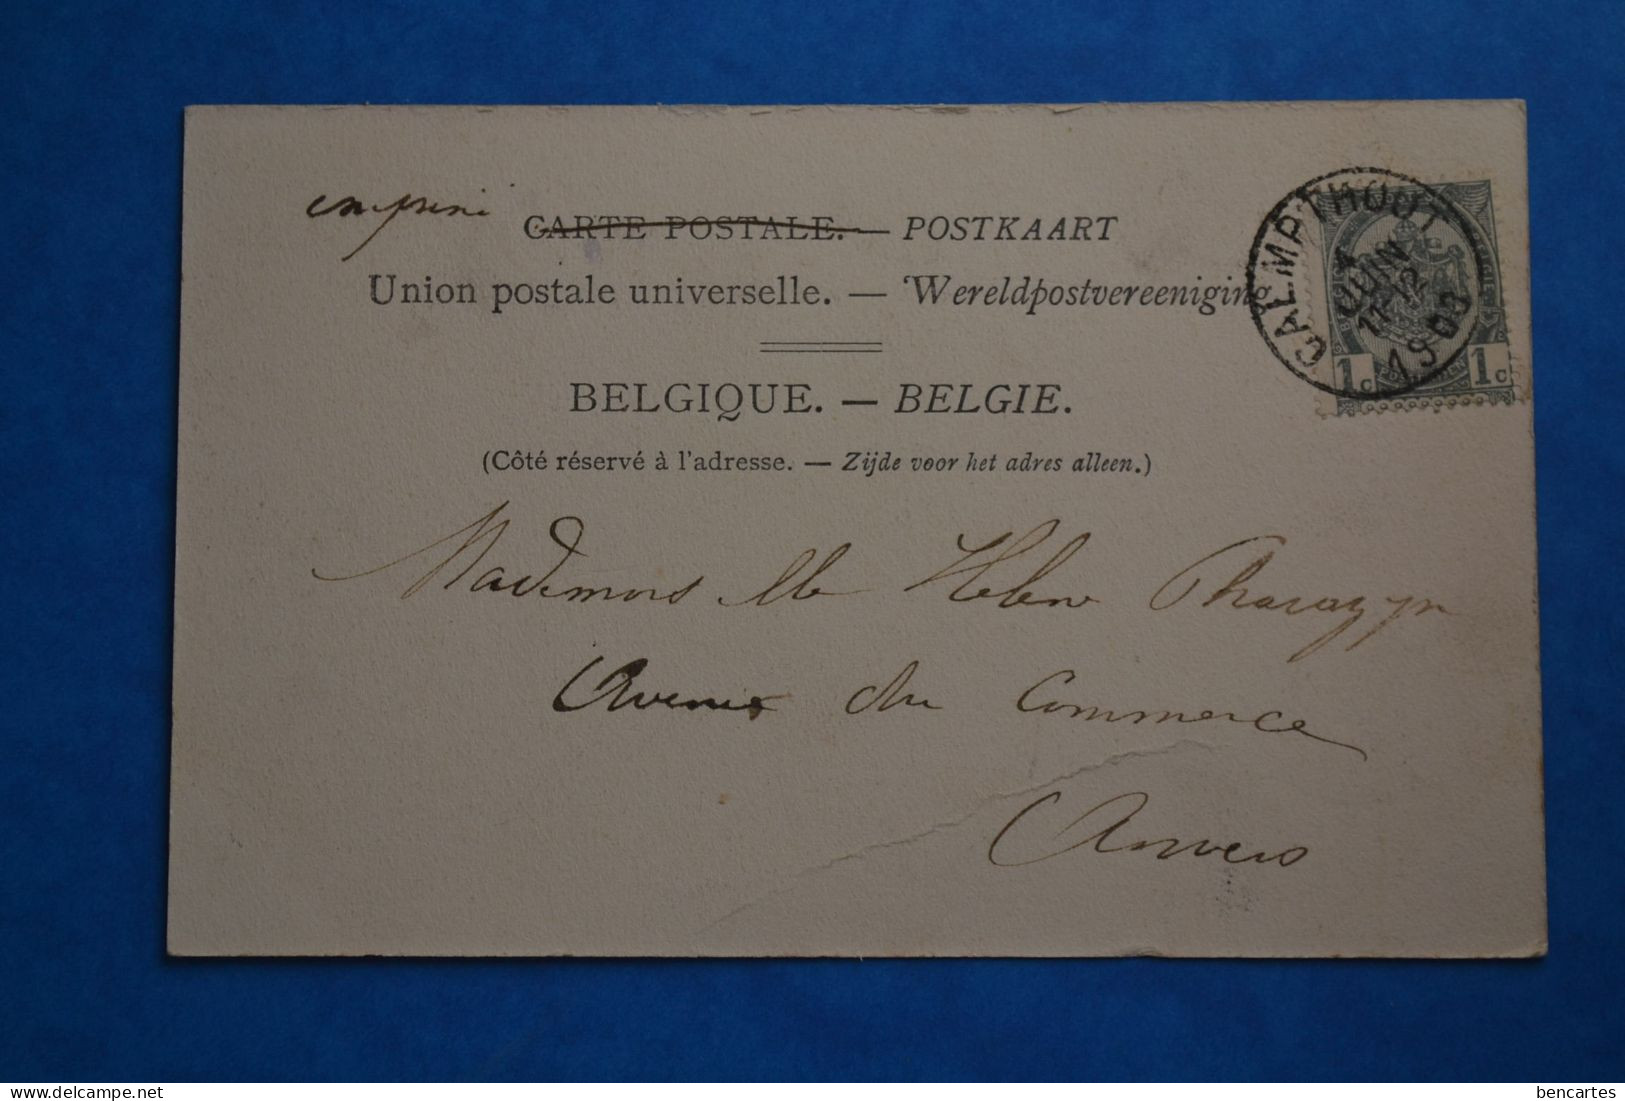 imprimé
CARTE POSTALE. — POSTKAART
Union postale universelle. — Wereldpostvereeniging
BELGIQUE. — BELGIE.
(Côté réservé à l'adresse. — Zijde voor het adres alleen.)
CALMPTHOUT
JUIN
11-12
1903
1c 1c
Mademoiselle Helene
Avenue du Commerce
Anvers
delcampe.net
bencartes